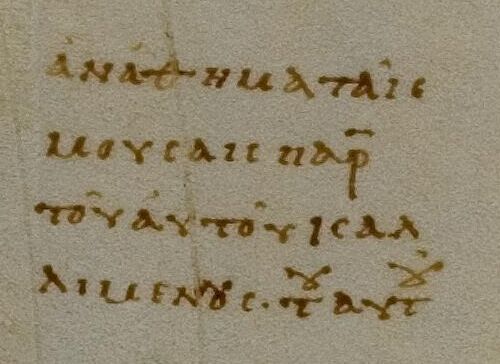 ἀνάθημα ταῖς
μουσαις παρ
τοῦ αὐτοῦ καλ
λιμενους· του αυτοῦ